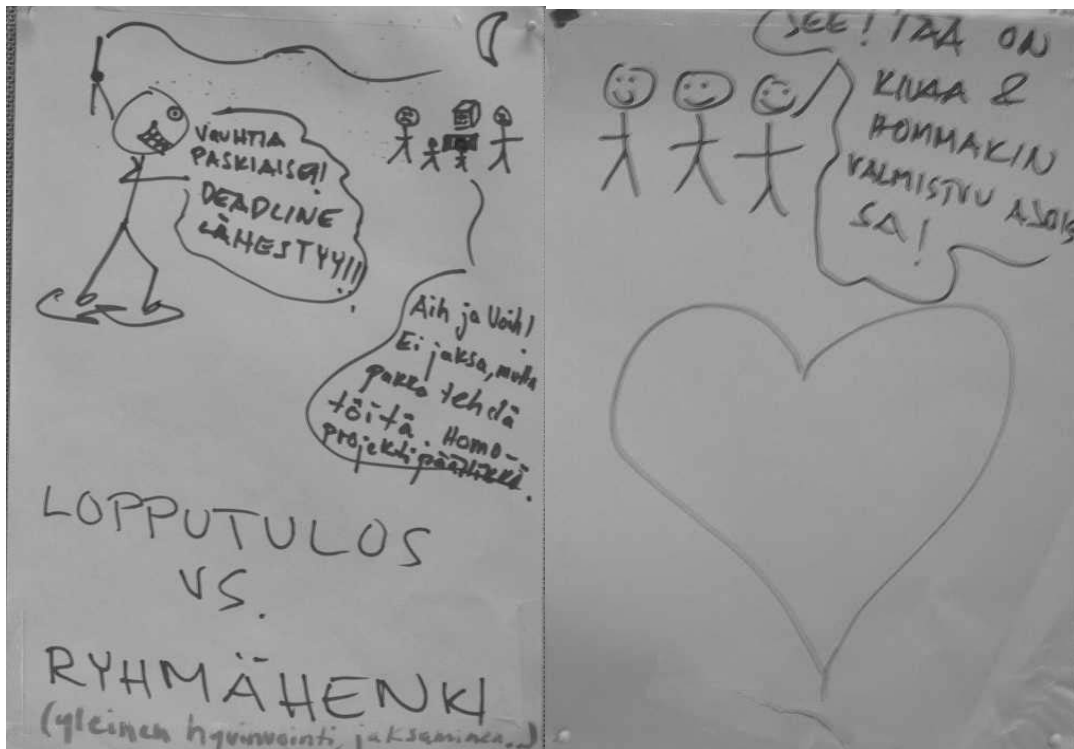 VAUHTIA
PASKIAISET!
DEADLINE
LÄHESTYY!!
Aih ja Voih!
Ei jaksa, mutta
pakko tehdä
töitä. Homo-
projektipäällikkö.
LOPPUTULOS
VS.
RYHMÄHENKI
(yleinen hyvinvointi, jaksaminen..)
SEE! TÄÄ ON
KIVAA &
HOMMAKIN
VALMISTUU
SA!